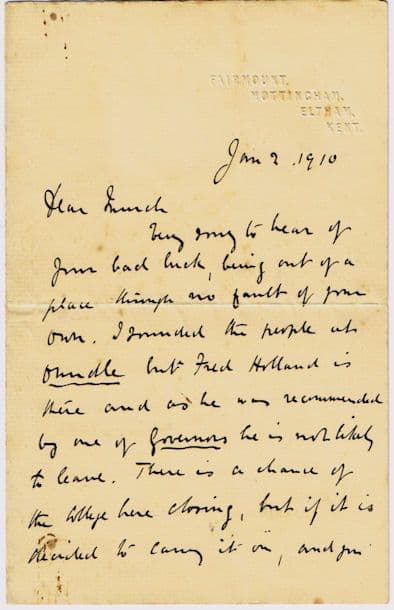 FAIRMOUNT,
MOTTINGHAM,
ELTHAM,
KENT.
Jan 2. 1910
Dear
Very sorry to hear of
your bad luck, being out of a
place through no fault of your
own. I sounded the people at
Oundle but Fred Holland is
there and as he was recommended
by one of Governors he is not likely
to leave. There is a chance of
the College here closing, but if it is
decided to carry it on, and